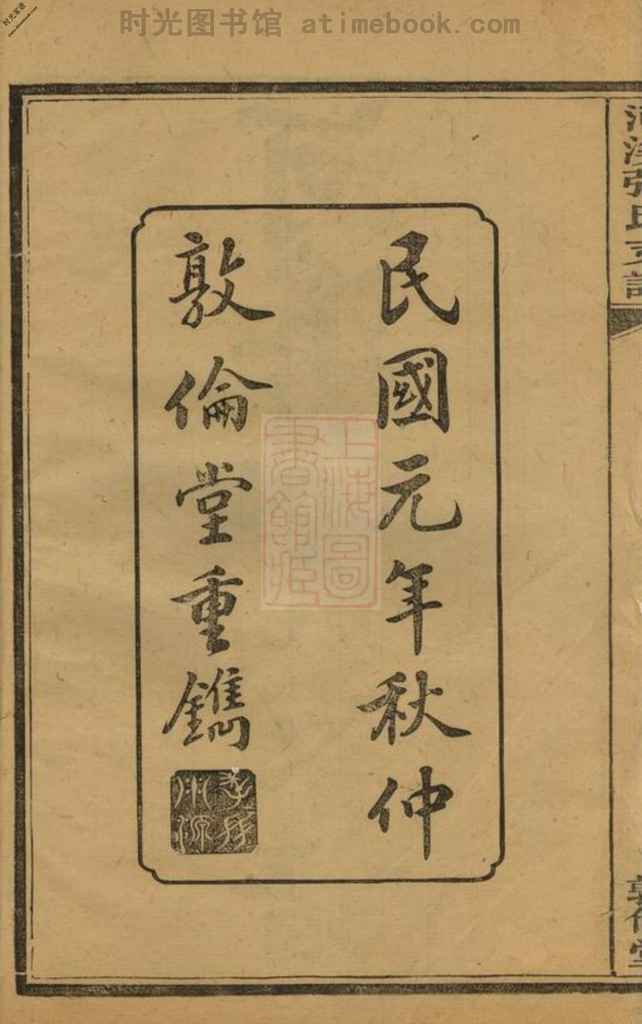 时光图书馆 atimebook.com
民國元年秋仲
敦倫堂重鐫
上海圖
書館
敦倫堂